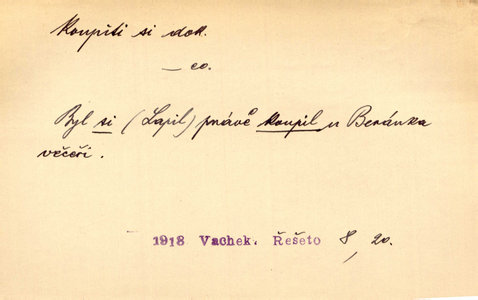 Koupiti si dok.
— co.
Byl si (Lapil) právě koupil u Beránka
večeři.
1918 Vachek. Řešeto 8, 20.